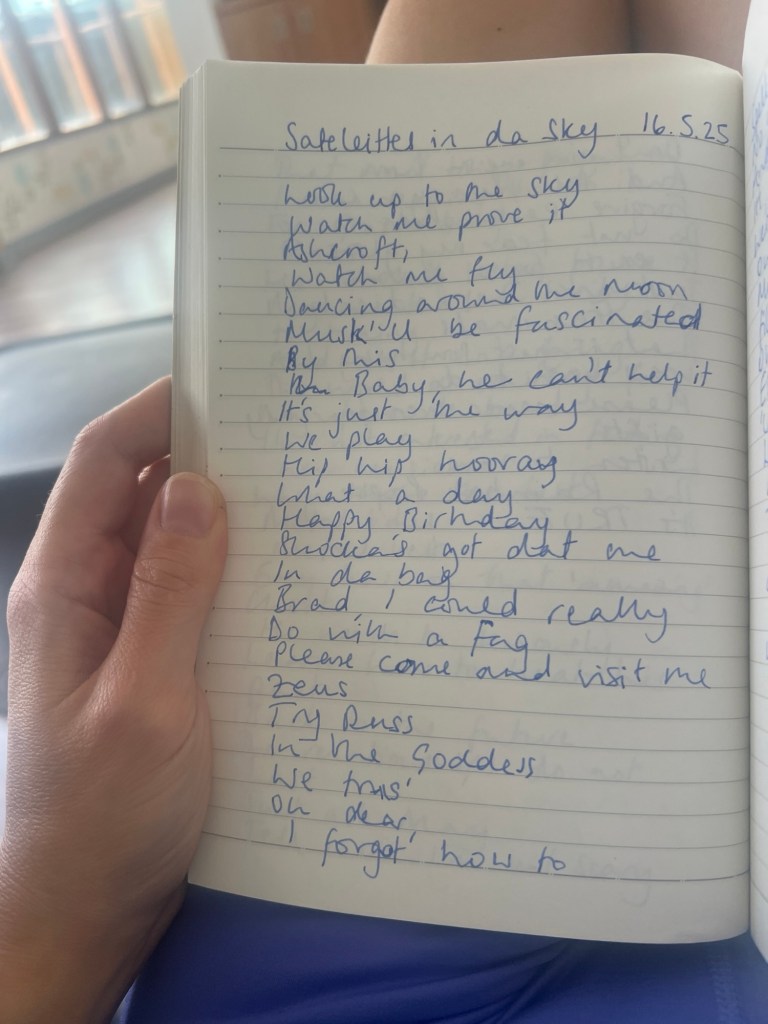 Sateleittes in da sky 16.5.25
Look up to the sky
Watch me prove it
Ashcroft,
Watch me fly
Dancing around the moon
Musk'll be fascinated
By this
Baby, he can't help it
It's just the way
We play
Hip hip hooray
What a day
Happy Birthday
got dat one
In da bag
Brad, I could really
Do with a fag
Please come and visit me
Zeus
Try Russ
In the Goddess
We trus'
Oh dear,
I forgot how to